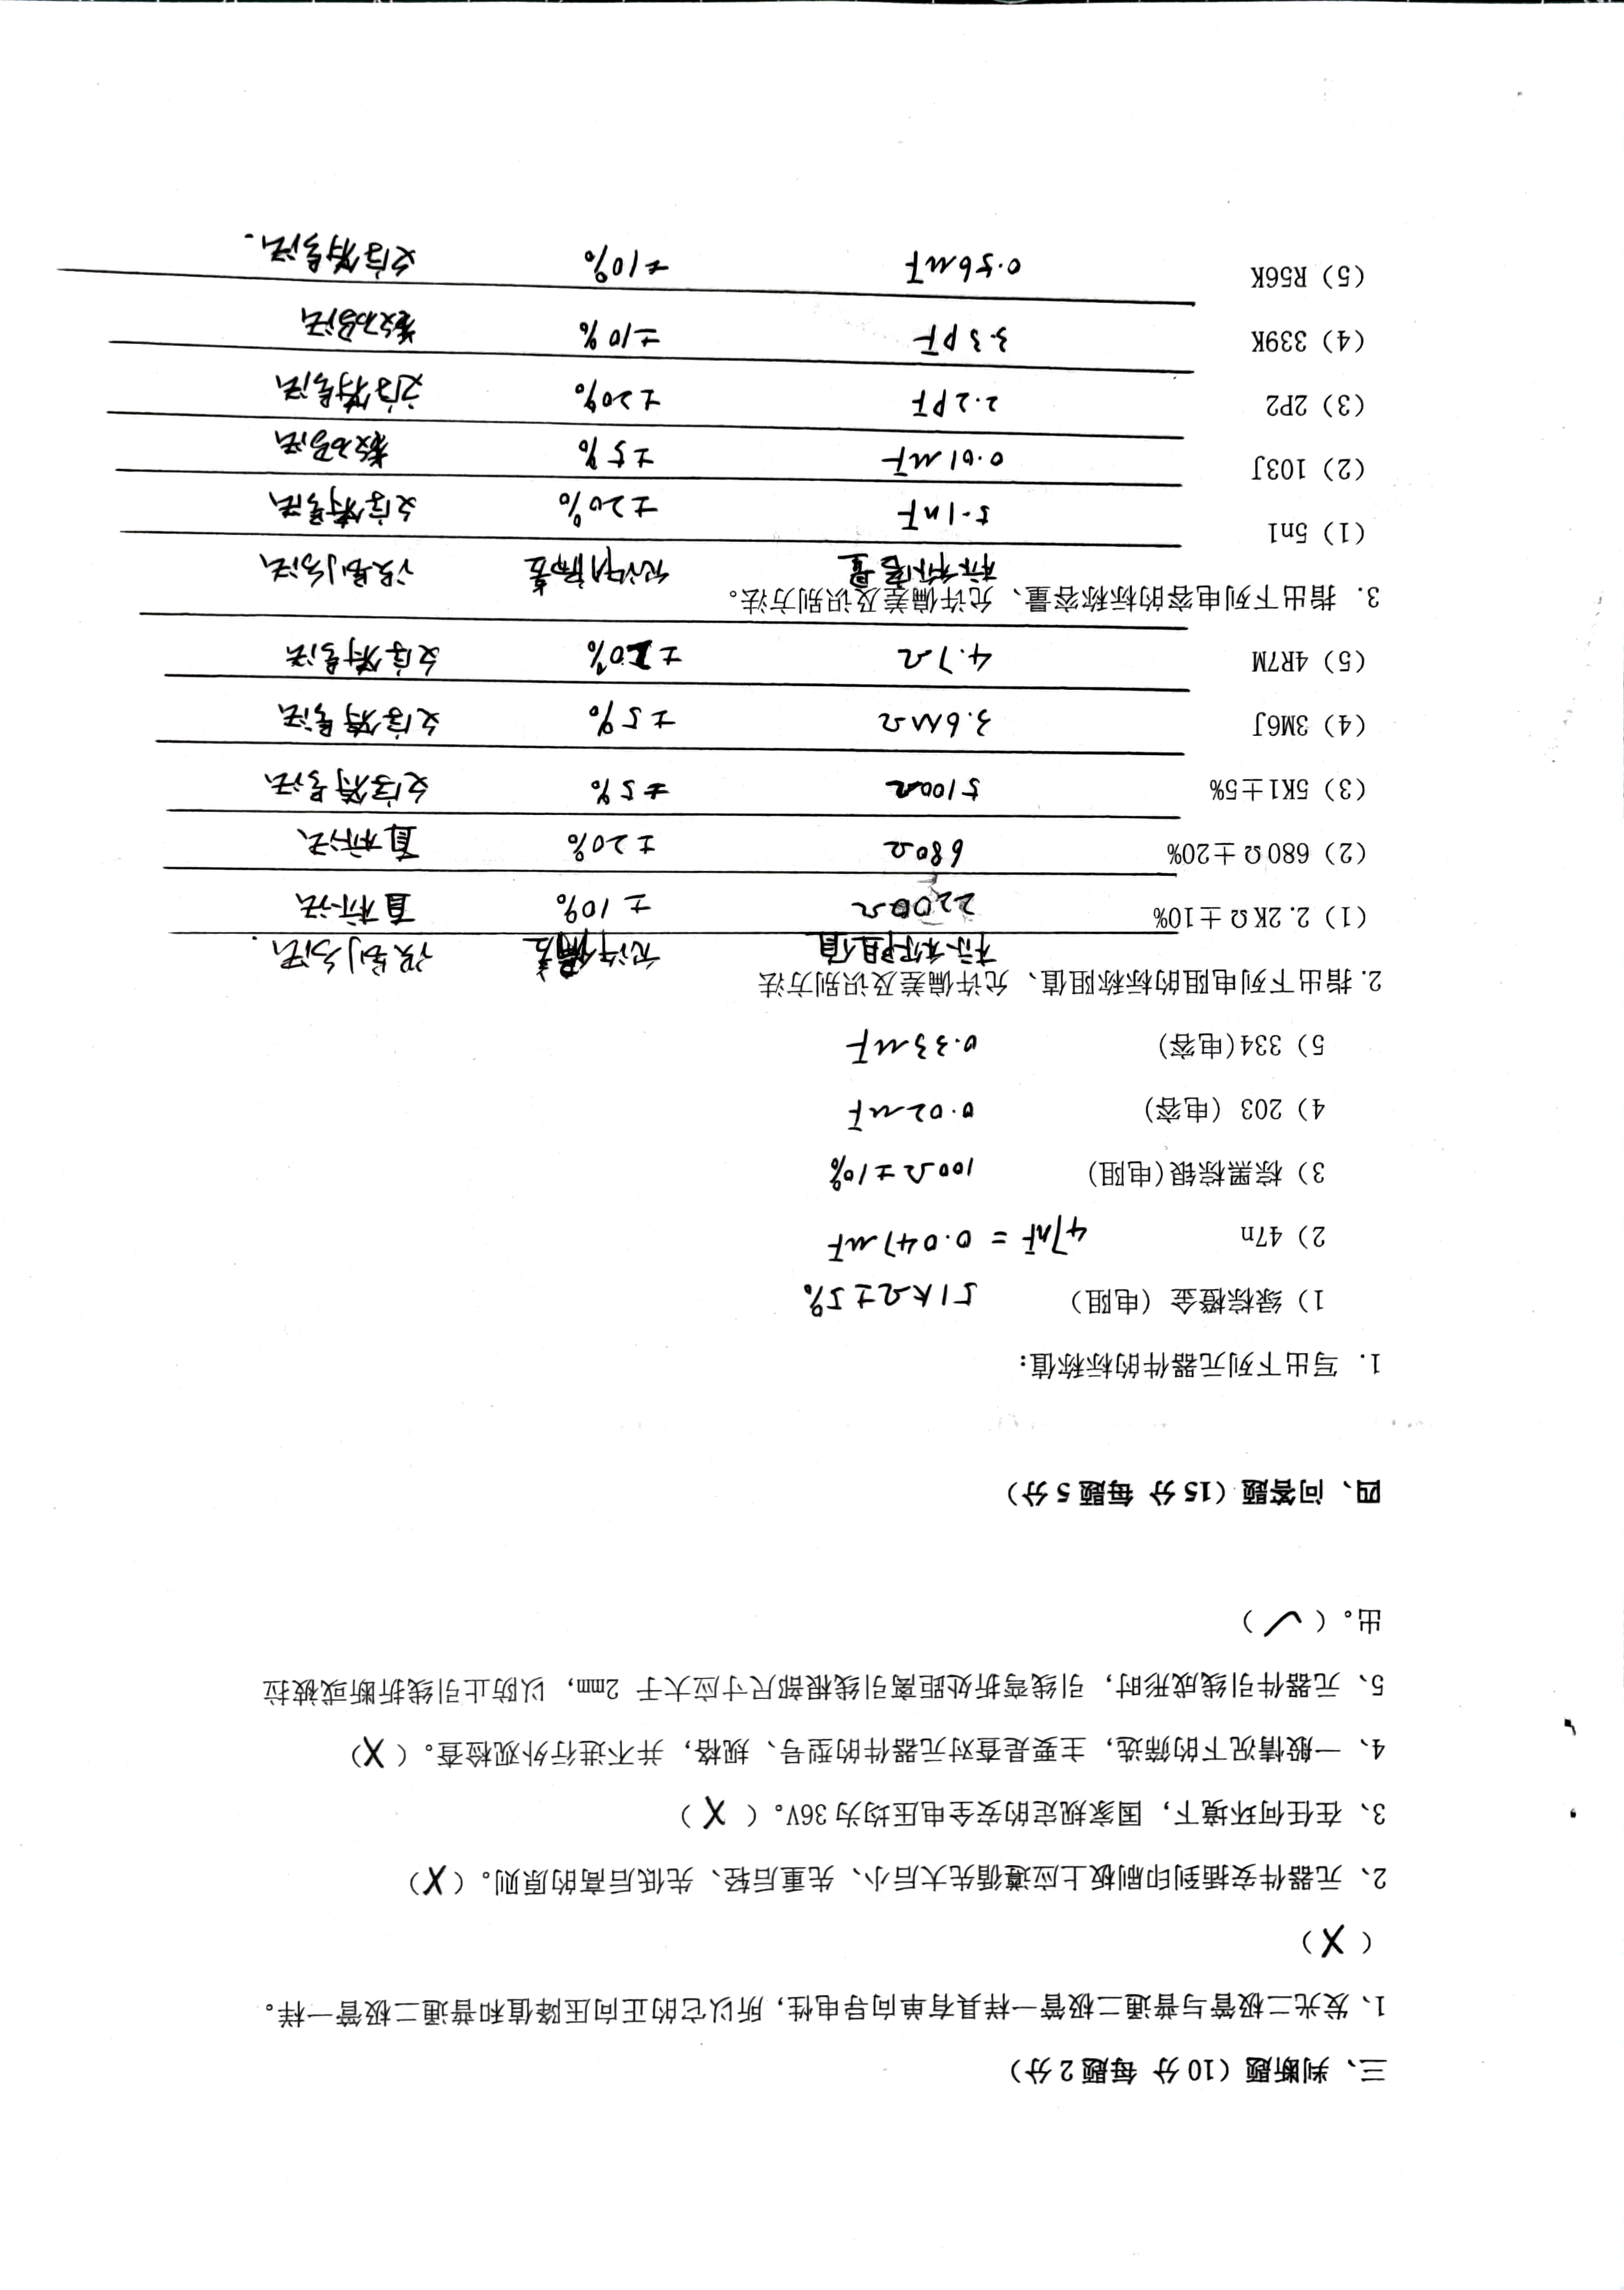 三、判断题（10 分 每题 2 分）
1、发光二极管与普通二极管一样具有单向导电性，所以它的正向压降值和普通二极管一样。
（ X ）
2、元器件安插到印刷板上应遵循先大后小、先重后轻、先低后高的原则。（ X ）
3、在任何环境下，国家规定的安全电压均为 36V。（ X ）
4、一般情况下的筛选，主要是查对元器件的型号、规格，并不进行外观检查。（ X ）
5、元器件引线成形时，引线弯折处距离引线根部尺寸应大于 2mm，以防止引线折断或被拉
出。（ ✓ ）
四、问答题（15 分 每题 5 分）
1. 写出下列元器件的标称值：
1）绿棕橙金（电阻） 51KΩ±5%
2）47n 47nF = 0.047uF
3）棕黑棕银(电阻) 100Ω ±10%
4）203（电容） 0.02uF
5）334(电容) 0.33uF
2.指出下列电阻的标称阻值、允许偏差及识别方法
标称阻值 允许偏差 识别方法.
（1）2.2KΩ±10% 2200Ω ±10% 直标法
（2）680Ω±20% 680Ω ±20% 直标法
（3）5K1±5% 5100Ω ±5% 文字符号法
（4）3M6J 3.6MΩ ±5% 文字符号法
（5）4R7M 4.7Ω ±20% 文字符号法
3. 指出下列电容的标称容量、允许偏差及识别方法。
标称容量 允许偏差 识别方法
（1）5n1 5.1nF ±20% 文字符号法
（2）103J 0.01uF ±5% 数码法
（3）2P2 2.2PF ±20% 文字符号法
（4）339K 3.3PF ±10% 数码法
（5）R56K 0.56uF ±10% 文字符号法.